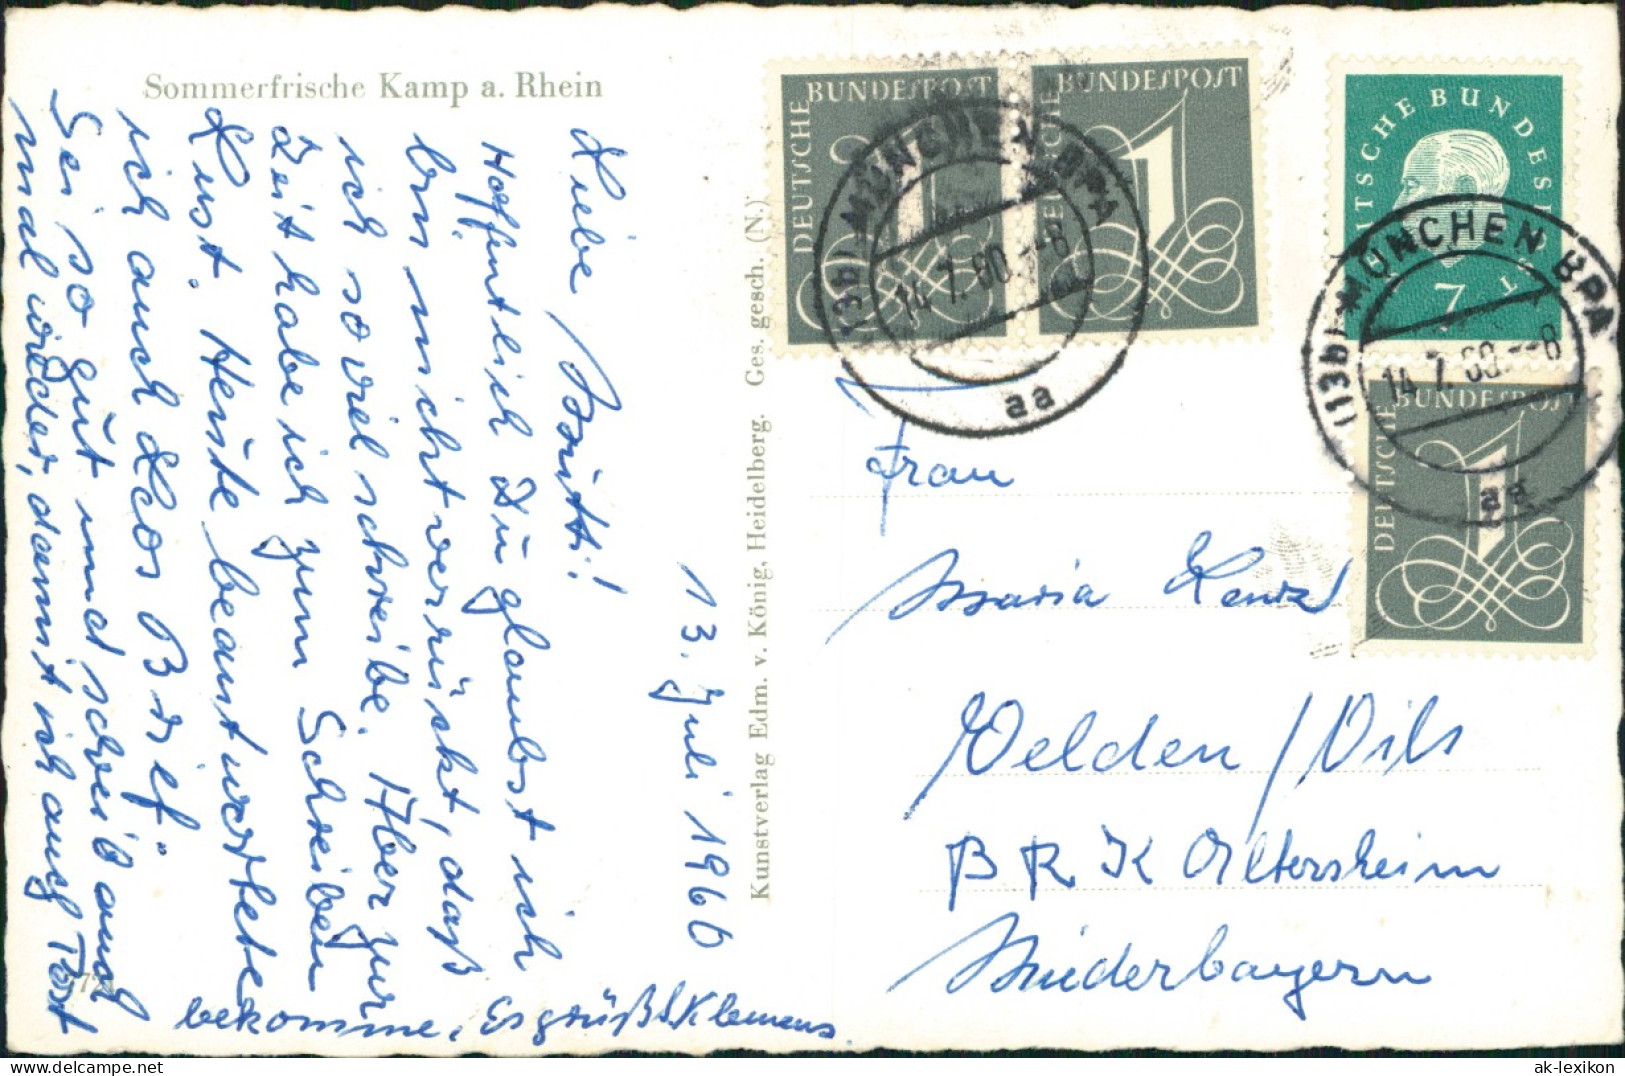 Sommerfrische Kamp a. Rhein
13. Juli 1960
Liebe Britt!
Hoffentlich Du glaubst ich
bin nicht verrückt, daß
ich soviel schreibe. Aber zur
Zeit habe ich zum Schreiben
Lust. Heute beantwortete
ich auch Leos Brief.
Sei so gut und schreib auch
mal wieder, damit ich auch Post
bekomme. Es grüßt Klemens
Kunstverlag Edm. v. König, Heidelberg. Ges. gesch. (N.)
DEUTSCHE BUNDESPOST
1
DEUTSCHE BUNDESPOST
1
DEUTSCHE BUNDESPOST
7
DEUTSCHE BUNDESPOST
1
(13b) MÜNCHEN BPA
14.7.60.--8
aa
(13b) MÜNCHEN BPA
14.7.60.--8
aa
Frau
Maria
Velden/Vils
BRK Altersheim
Niederbayern
ak-lexikon